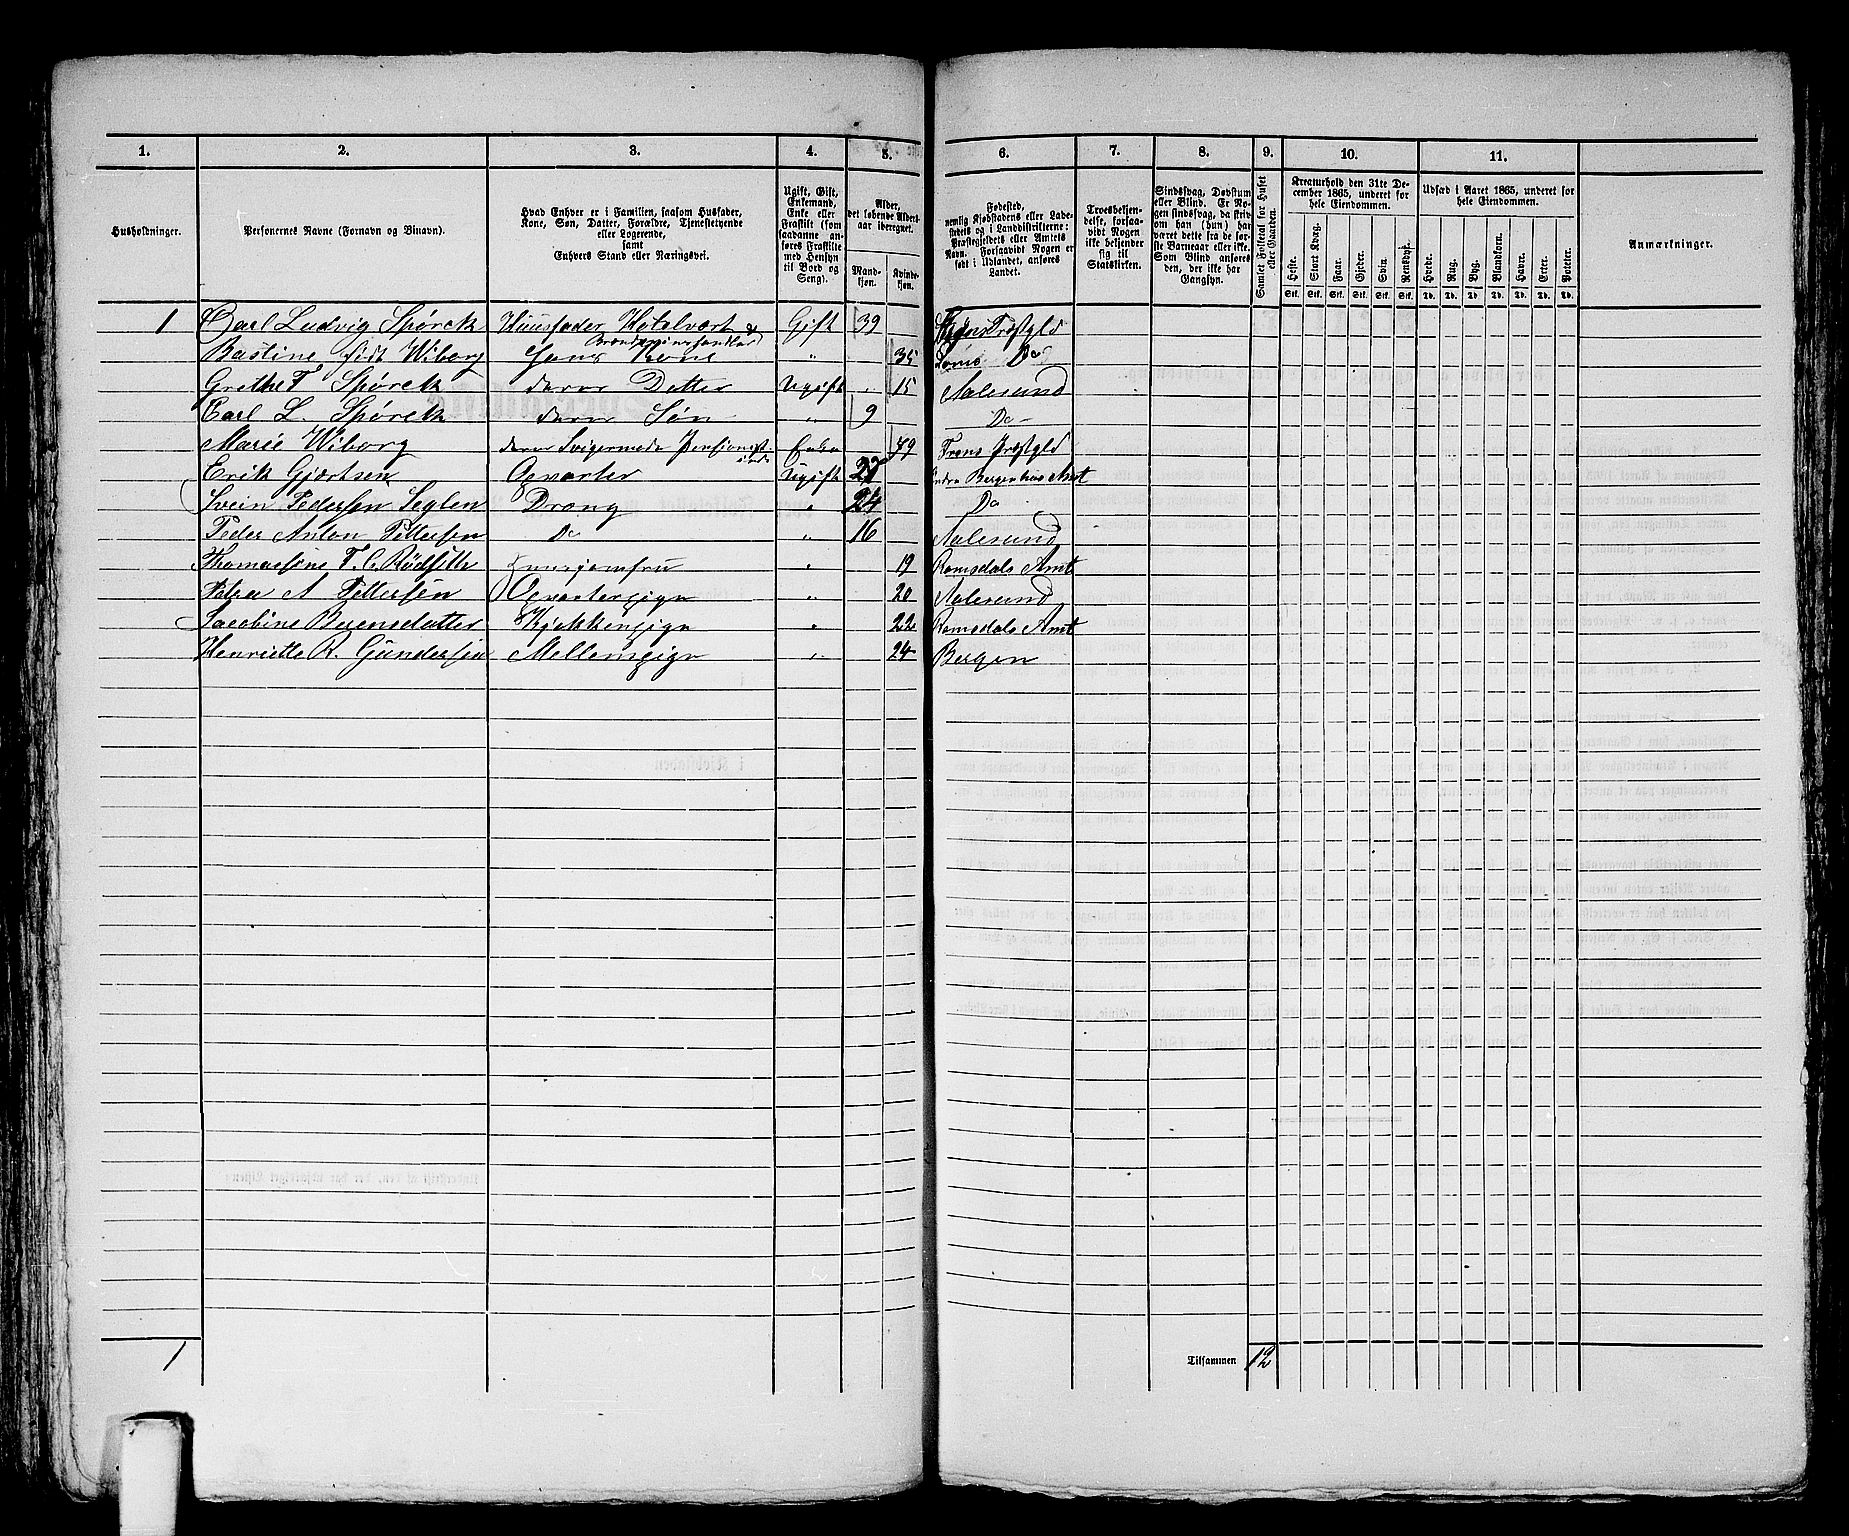 1. 2. 3. 4. 5. 6. 7. 8. 9. 10. 11.
Husholdninger.
Personernes Navne (Fornavn og Binavn).
Hvad Enhver er i Familien, saasom Husfader,
Kone, Søn, Datter, Forældre, Tjenestetyende
eller Logerende,
samt
Enhvers Stand eller Næringsvei.
Ugift, Gift,
Enkemand,
Enke eller
Fraskilt (som
saadanne an-
føres Fraskilte
med Hensyn
til Bord og
Seng).
Alder,
det løbende Alders-
aar iberegnet.
Mand-
kjøn.
Kvinde-
kjøn.
Fødested,
nemlig Kjøbstadens eller Lade-
stedets og i Landdistrikterne:
Præstegjeldets eller Amtets
Navn. Forsaavidt Nogen er
født i Udlandet, anføres
Landet.
Troesbekjen-
delse, forsaa-
vidt Nogen
ikke bekjender
sig til
Statskirken.
Sindssvag, Døvstum
eller Blind. Er No-
gen sindssvag, da skriv
om han (hun) har
været dette fra de før-
ste Barneaar eller ikke.
Som Blind anføres
den, der ikke har
Gangsyn.
Samlet Folketal for Huset
eller Gaarden.
Kreaturhold den 31te De-
cember 1865, underet for
hele Eiendommen.
Heste. Stort Kvæg. Faar. Gjeder. Svin. Rensdyr.
Stk. Stk. Stk. Stk. Stk. Stk.
Udsæd i Aaret 1865, underet for
hele Eiendommen.
Hvede. Rug. Byg. Blandkorn. Havre. Erter. Poteter.
Td. Td. Td. Td. Td. Td. Td.
Anmærkninger.
1 Carl Ludvig Spørck Huusfader Hotelvært & Brændeviinshandler Gift 39 Præstgld
Bastine født Wiborg Hans Kone " 35 Do
Grethe F Spørck deres Datter Ugift " 15 Aalesund
Carl L. Spørck deres Søn " 9 Do
Marie Wiborg deres Svigermoder Enke 79 Præstgld
Erik Gjærtsen Opvarter Ugift 27 Bergenhus Amt
Svein Pedersen Seglen Dreng " 24 Do
Peder Anton Pettersen Do " 16 Aalesund
Thomassine F. C. Rødsæth Huusjomfru " 19 Romsdals Amt
Petra A Pettersen Opvartespige " 20 Aalesund
Jacobine Berensdatter Kjøkkenpige " 22 Romsdals Amt
Henriette R. Gundersen Mellempige " 24 Bergen
1
Tilsammen 12